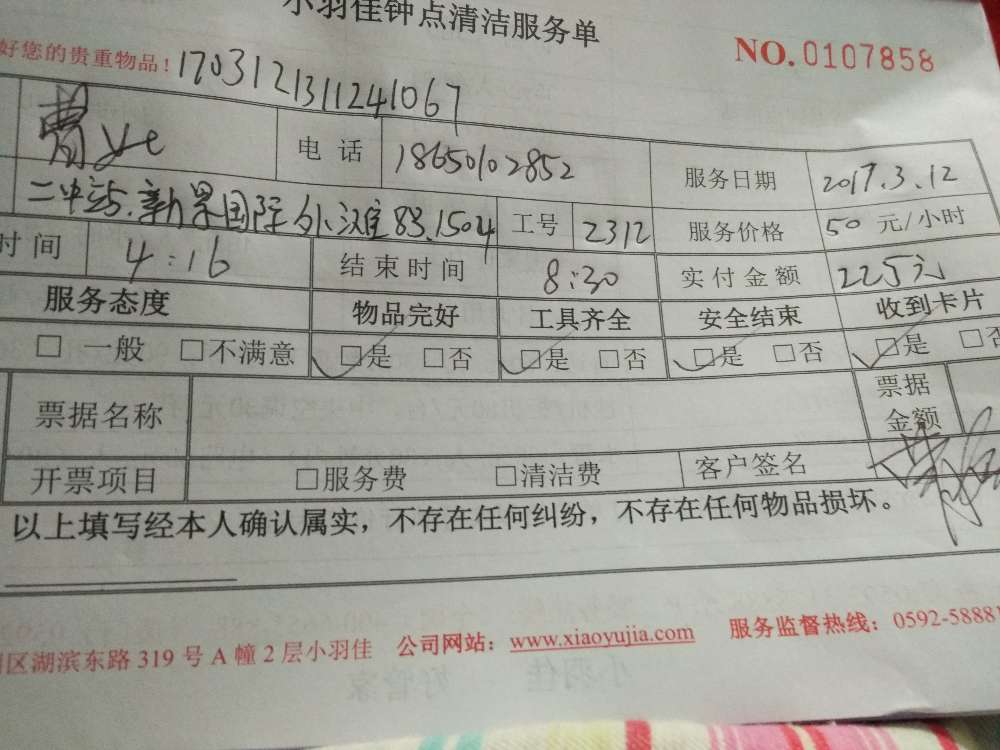 小羽佳钟点清洁服务单
NO. 0107858
好您的贵重物品! 1703121311241067
曹 电话 18650102852 服务日期 2017.3.12
二中站.新景国际外滩83.1504 工号 2312 服务价格 50 元/小时
时间 4:16 结束时间 8:30 实付金额 225元
服务态度 物品完好 工具齐全 安全结束 收到卡片
□ 一般 □不满意 ✓□是 □否 ✓□是 □否 ✓□是 □否 ✓□是 □否
票据名称 票据金额
开票项目 □服务费 □清洁费 客户签名
以上填写经本人确认属实，不存在任何纠纷，不存在任何物品损坏。
区湖滨东路 319 号 A 幢 2 层小羽佳 公司网站：www.xiaoyujia.com 服务监督热线：0592-58881